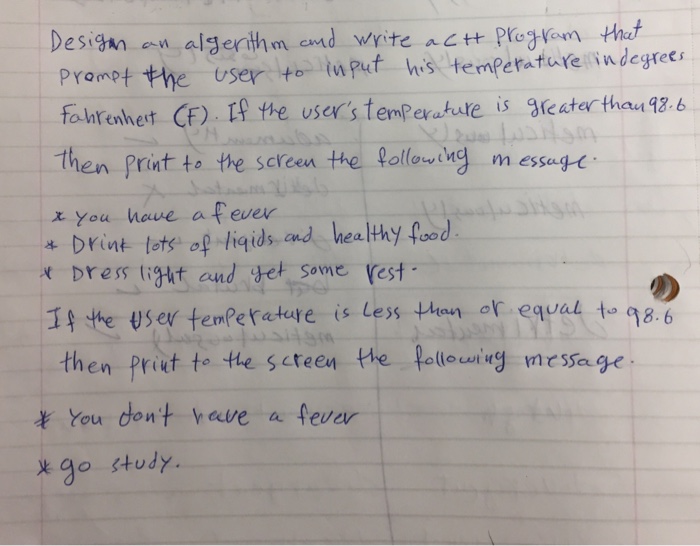 Design an algerithm and write a c++ program that
prompt the user to input his temperature in degrees
Fahrenheit (F). If the user's temperature is greater than 98.6
then print to the screen the following message.
* You have a fever
* Drink lots of liqids and healthy food.
* Dress light and get some rest.
If the user temperature is less than or equal to 98.6
then print to the screen the following message.
* You don't have a fever
* go study.